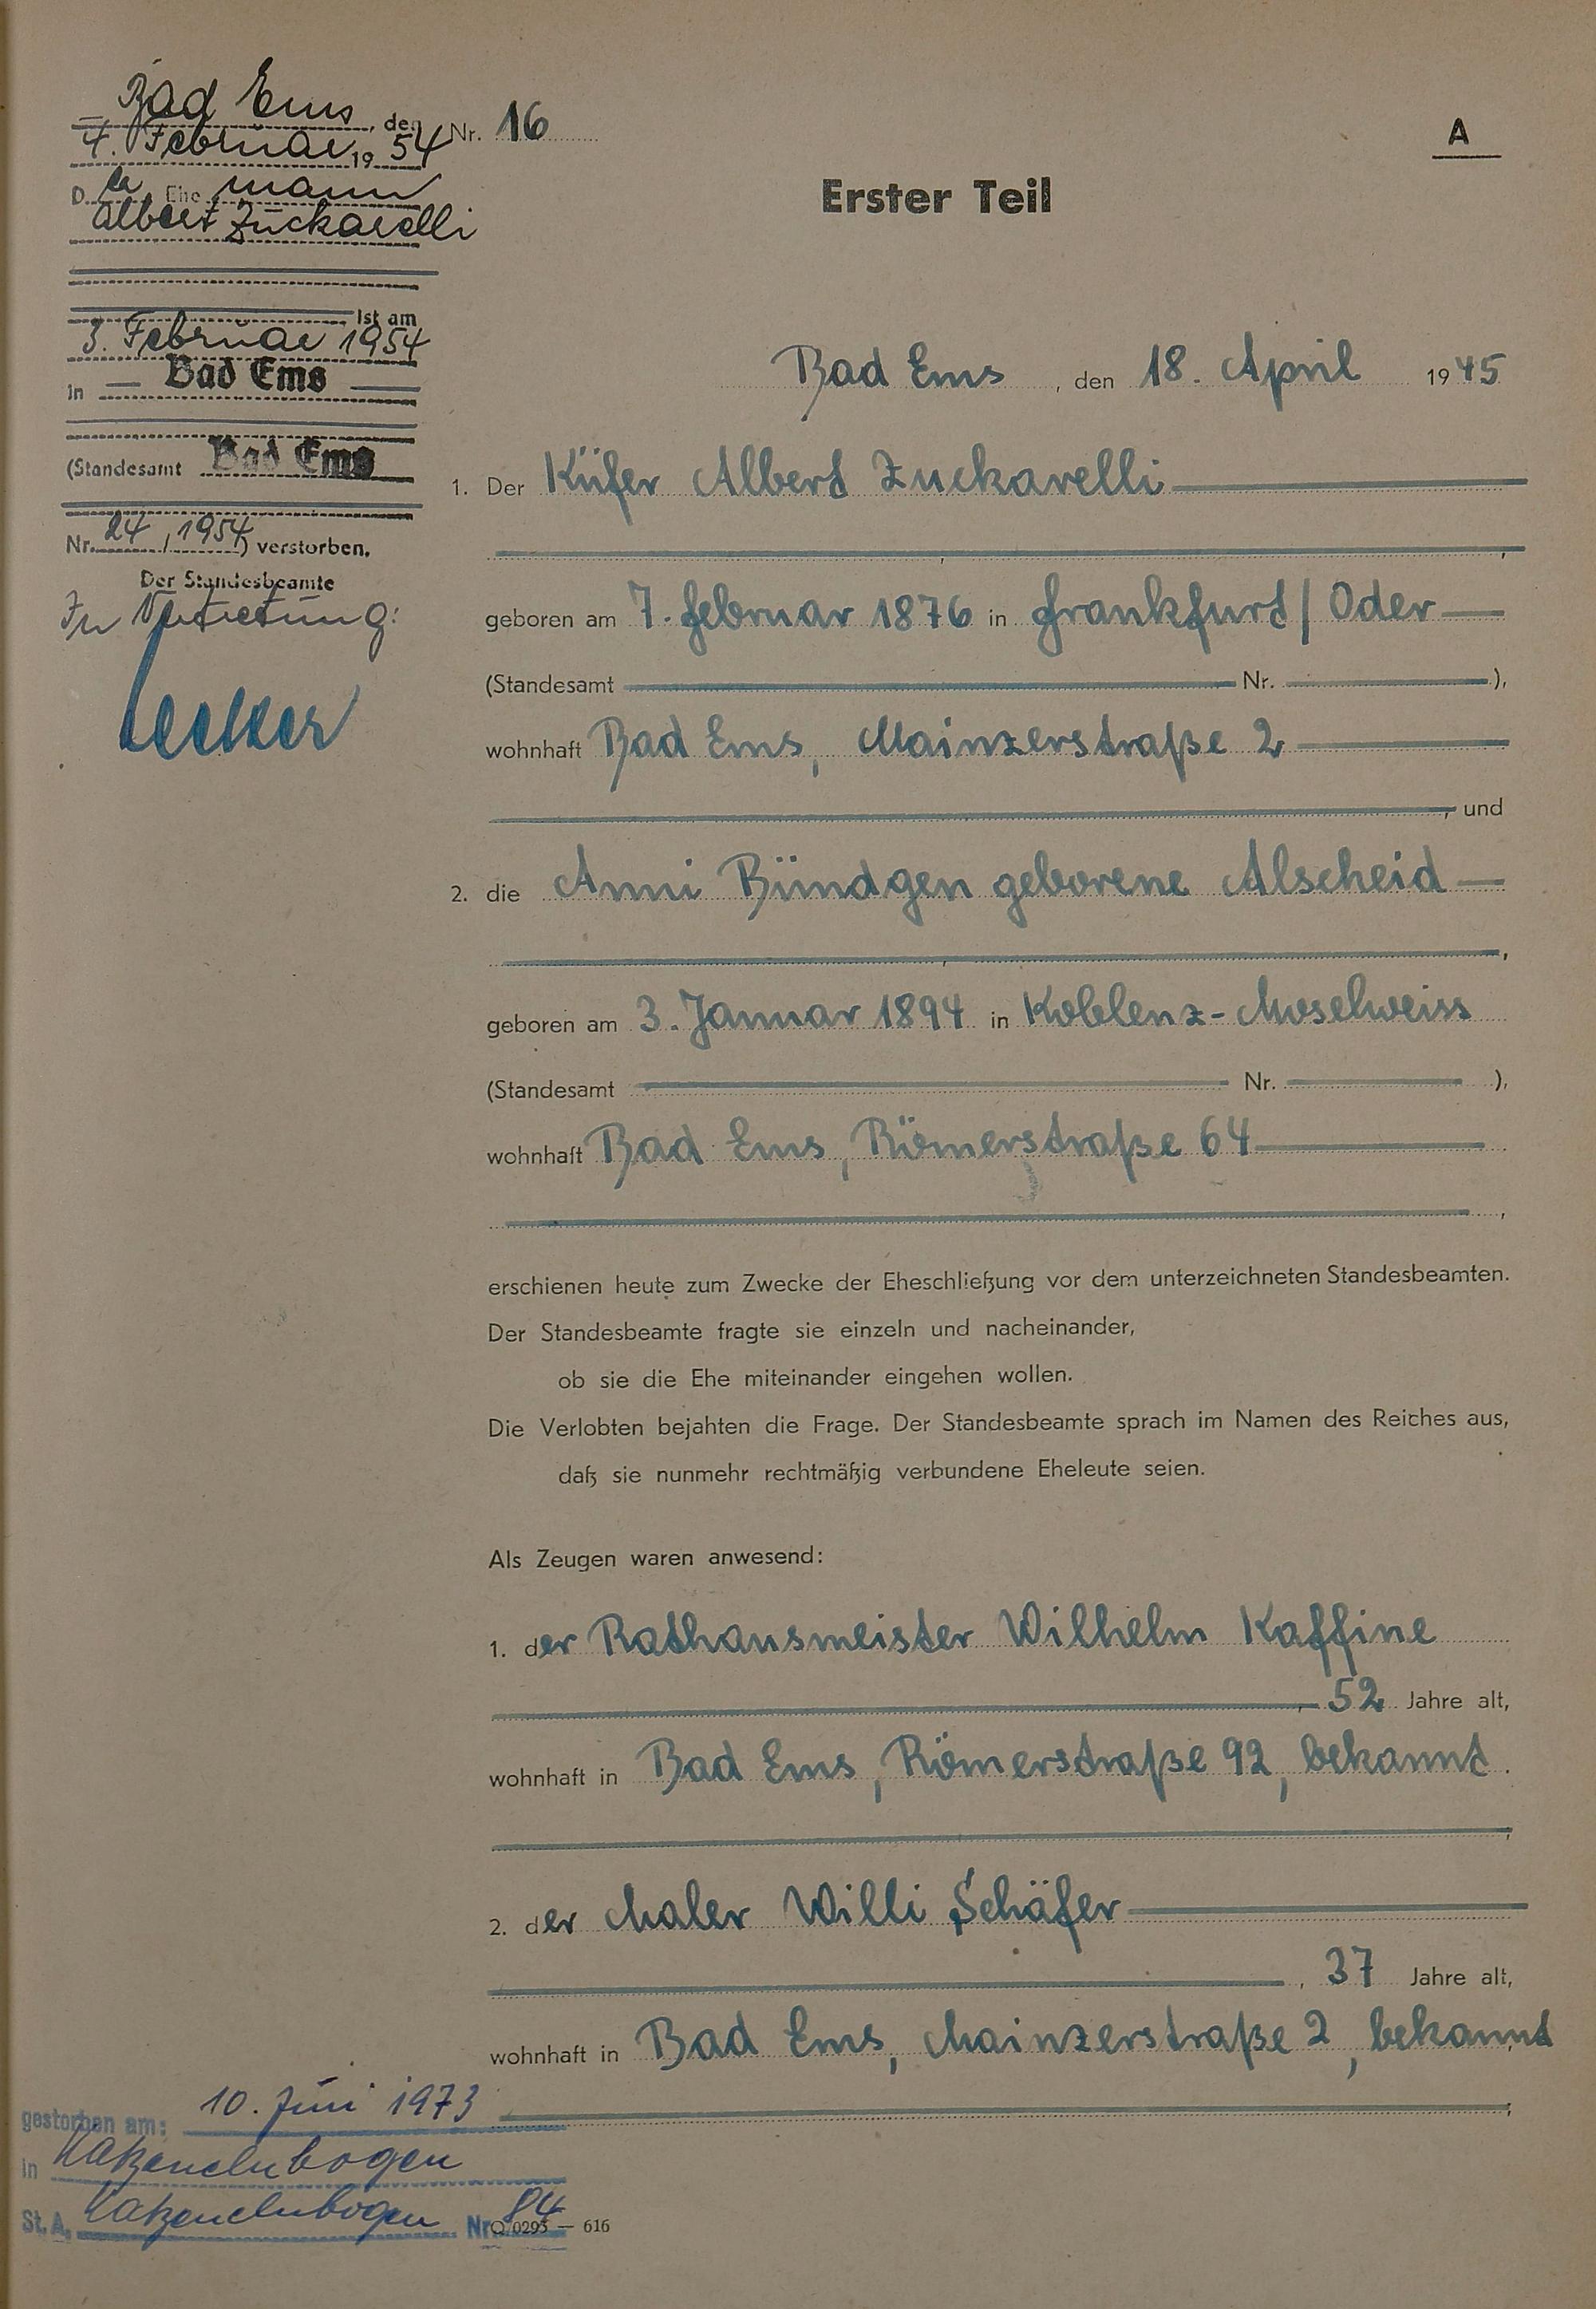 Bad Ems, den
4. Februar 1954
Der Ehemann
Albert Zuckarelli
ist am
3. Februar 1954
in Bad Ems
(Standesamt Bad Ems
Nr. 24/1954) verstorben.
Der Standesbeamte
In Vertretung:
Nr. 16
A
Erster Teil
Bad Ems, den 18. April 1945
1. Der Küfer Albert Zuckarelli
geboren am 7. Februar 1876 in Frankfurt/Oder
(Standesamt Nr. ),
wohnhaft Bad Ems, Mainzerstraße 2
, und
2. die Anni Bündgen geborene Alscheid
,
geboren am 3. Januar 1894 in Koblenz-Moselweiss
(Standesamt Nr. ),
wohnhaft Bad Ems, Römerstraße 64
,
erschienen heute zum Zwecke der Eheschließung vor dem unterzeichneten Standesbeamten.
Der Standesbeamte fragte sie einzeln und nacheinander,
ob sie die Ehe miteinander eingehen wollen.
Die Verlobten bejahten die Frage. Der Standesbeamte sprach im Namen des Reiches aus,
daß sie nunmehr rechtmäßig verbundene Eheleute seien.
Als Zeugen waren anwesend:
1. der Rathausmeister Wilhelm Kaffine
, 52 Jahre alt,
wohnhaft in Bad Ems, Römerstraße 92, bekannt
2. der Maler Willi Schäfer
, 37 Jahre alt,
wohnhaft in Bad Ems, Mainzerstraße 2, bekannt
;
gestorben am: 10. Juni 1973
in Katzenelnbogen
St. A. Katzenelnbogen Nr. 84
Q 0293 — 616